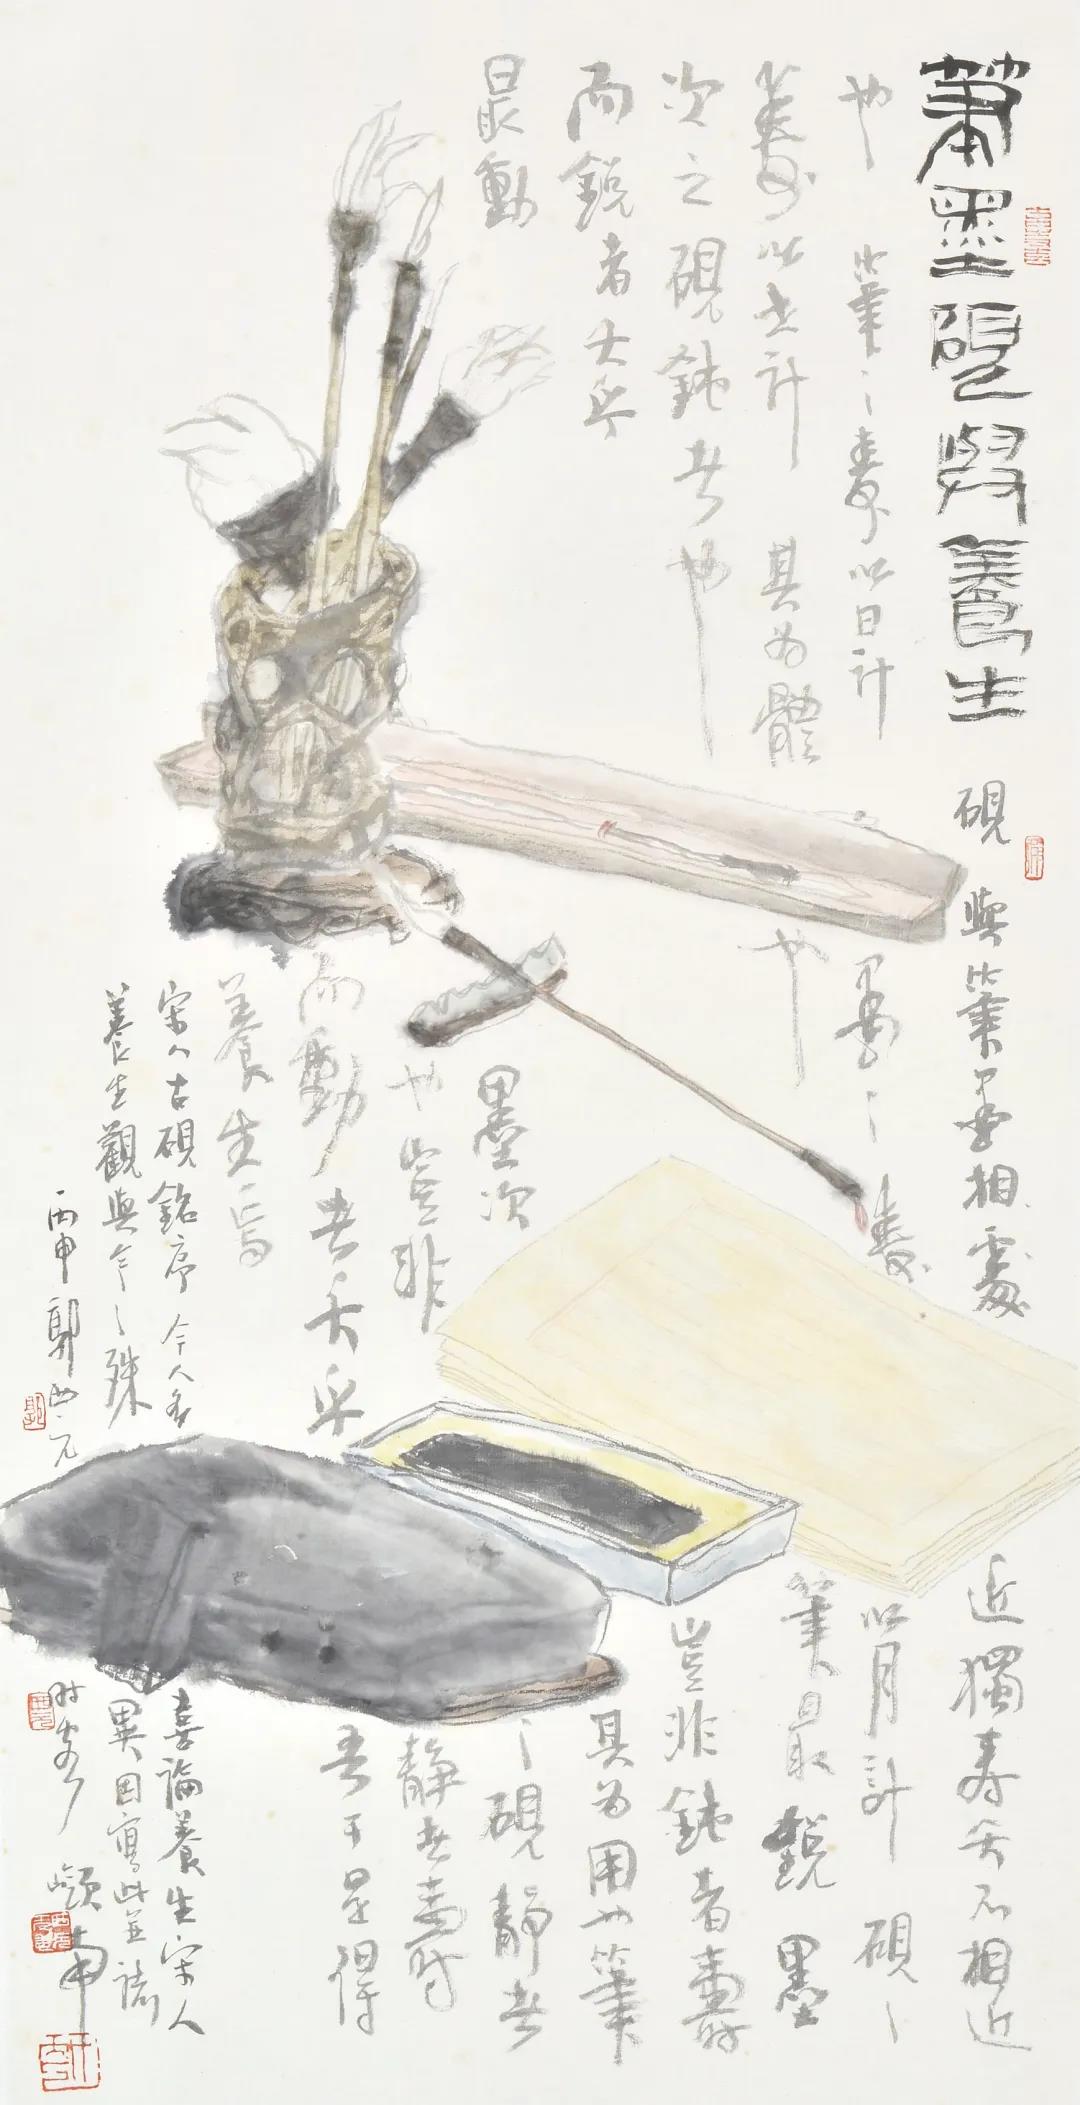 筆墨硯與養生 硯與筆墨相處近獨壽夭不相近
也筆之壽以日計墨之壽以月計硯之
壽以世計其為體也筆最銳墨
次之硯鈍者也豈非鈍者壽
而銳者夭乎其為用也筆
最動墨次之硯靜者
也豈非靜者壽
而動者夭乎吾于是得
養生焉
宋人古硯銘序今人多喜論養生宋人
養生觀與今之殊異因寫此並識
丙申郭西元時客嶺南